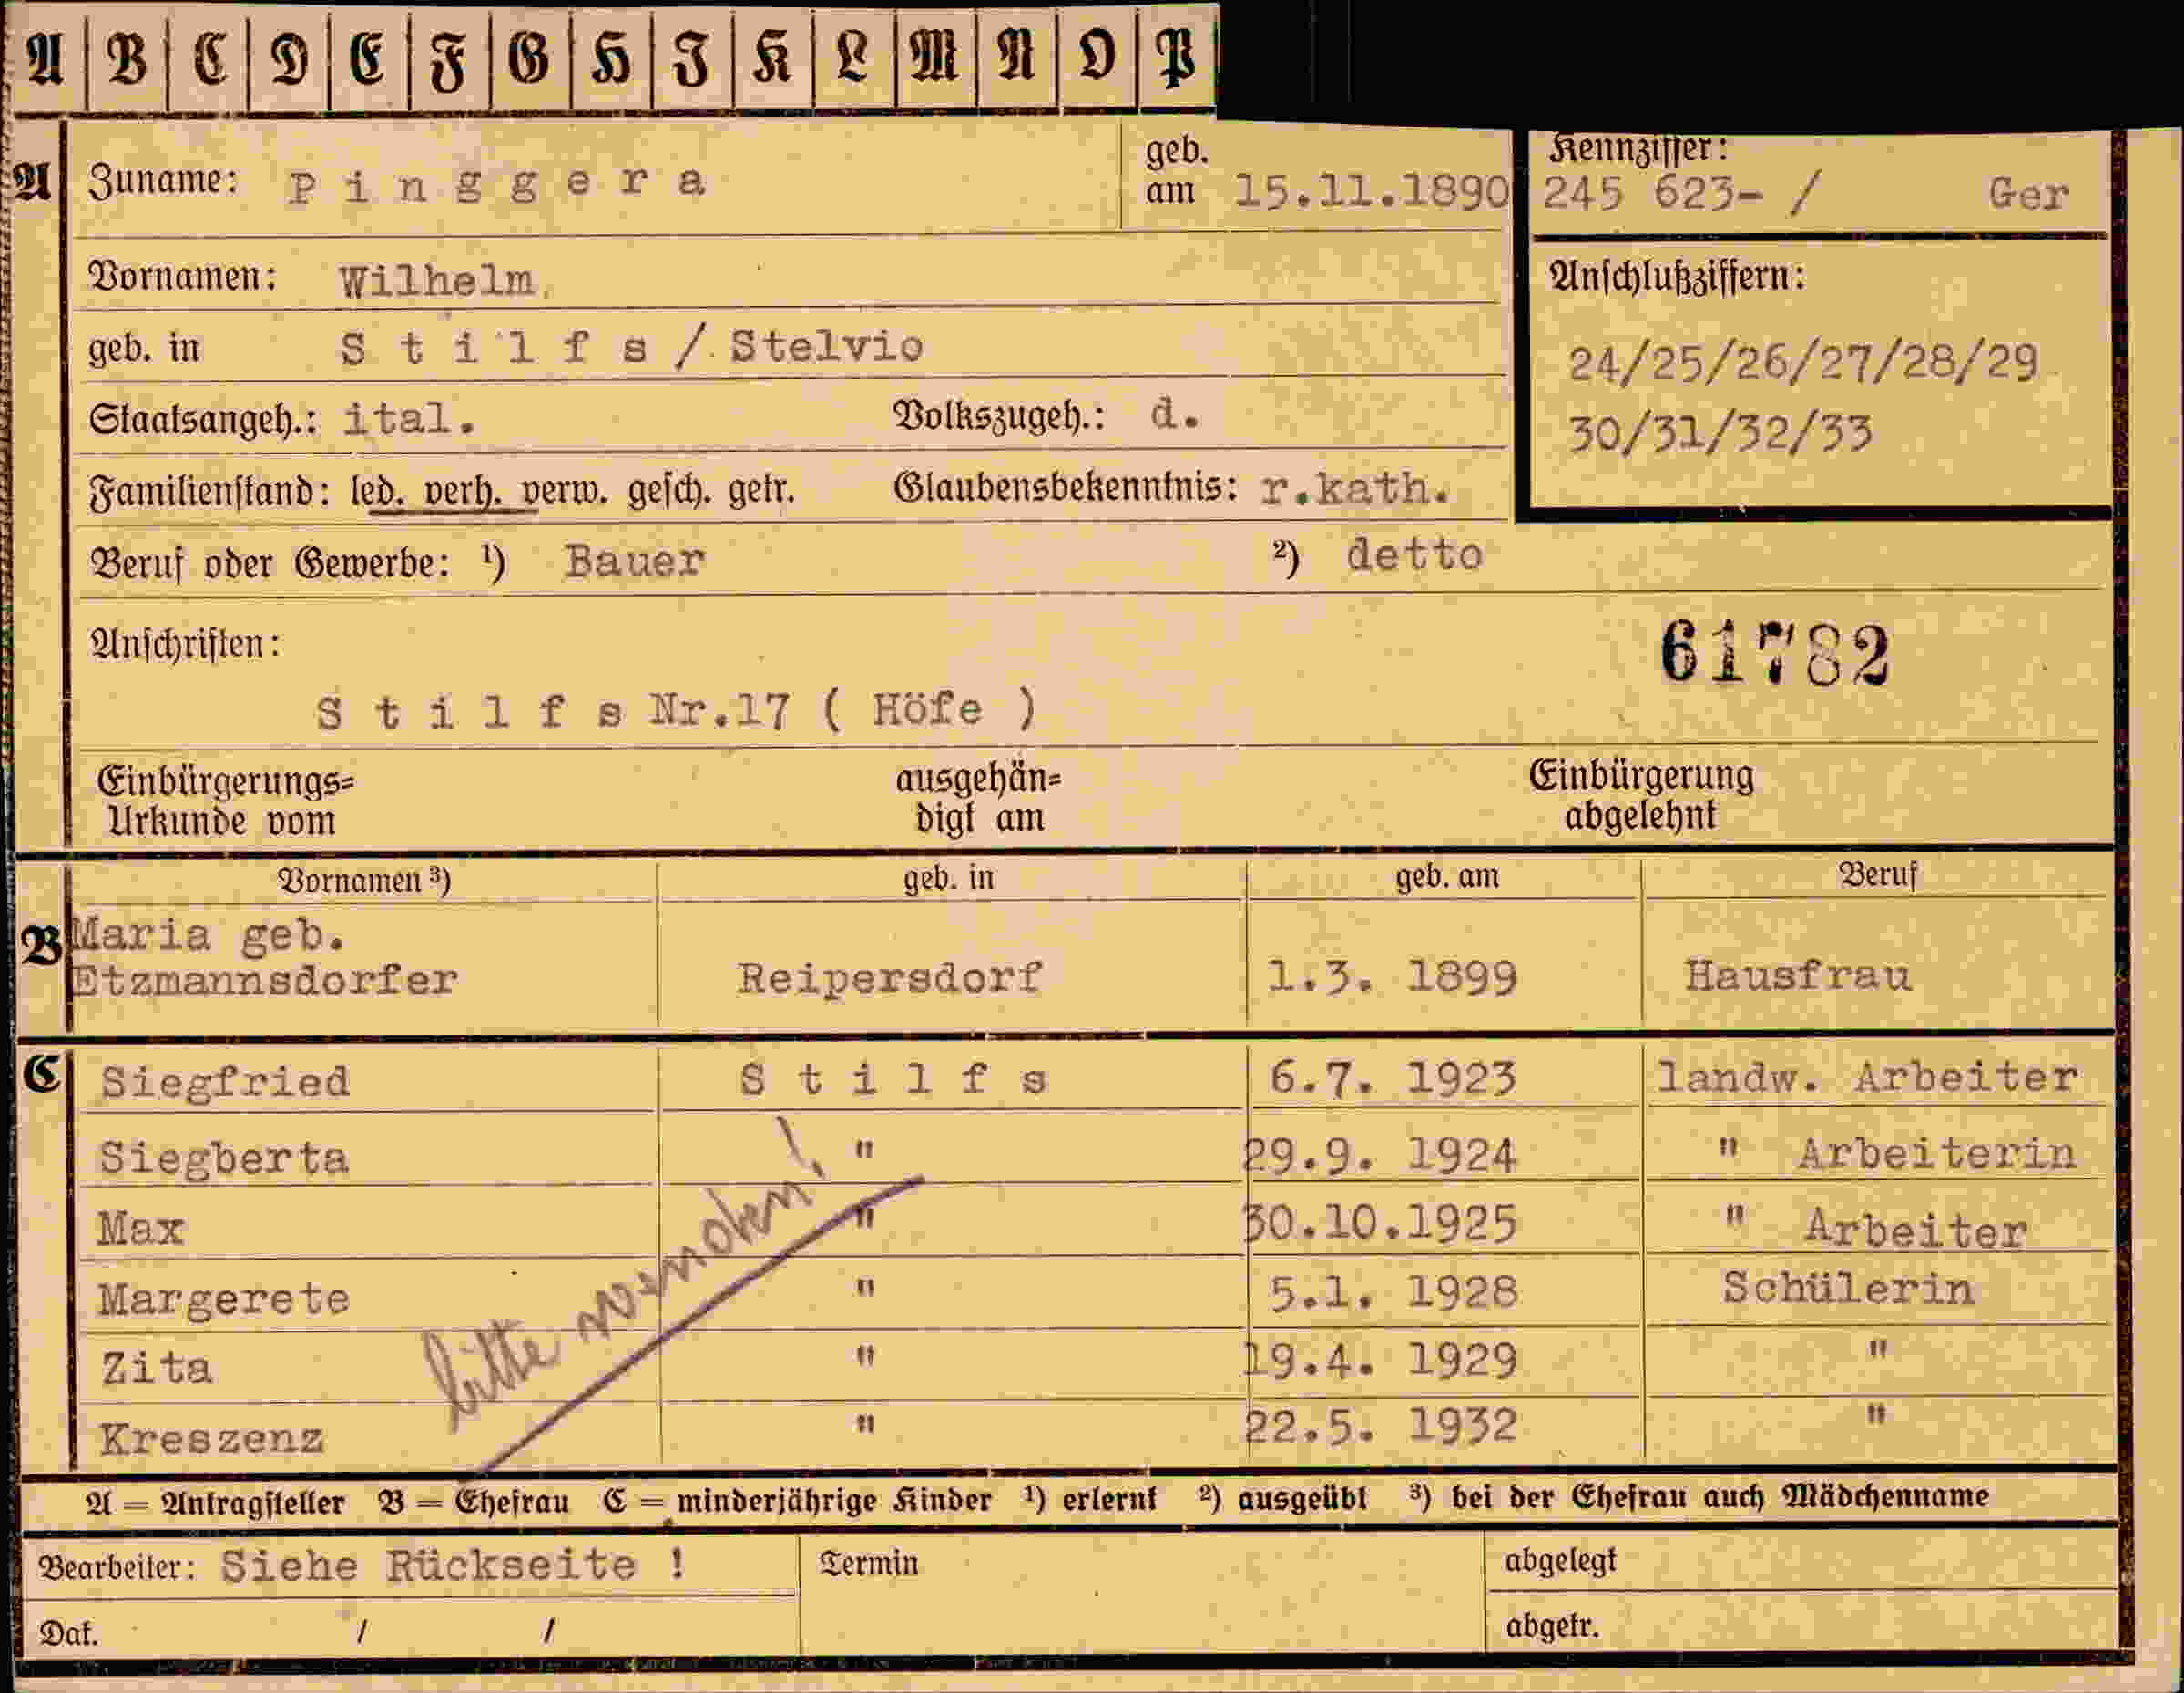 A B C D E F G H I K L M N O P
A Zuname: P i n g g e r a geb. am 15.11.1890
Kennziffer:
245 623- / Ger
Vornamen: Wilhelm
Anschlußziffern:
geb. in S t i l f s / Stelvio
24/25/26/27/28/29
Staatsangeh.: ital. Volkszugeh.: d.
30/31/32/33
Familienstand: led. verh. verw. gesch. getr. Glaubensbekenntnis: r.kath.
Beruf oder Gewerbe: ¹) Bauer ²) detto
Anschriften:
61782
S t i l f s Nr.17 ( Höfe )
Einbürgerungs= ausgehän= Einbürgerung
Urkunde vom digt am abgelehnt
Vornamen ³) geb. in geb. am Beruf
B Maria geb.
Etzmannsdorfer Reipersdorf 1.3. 1899 Hausfrau
C Siegfried S t i l f s 6.7. 1923 landw. Arbeiter
Siegberta " 29.9. 1924 " Arbeiterin
Max " 30.10.1925 " Arbeiter
Margerete " 5.1. 1928 Schülerin
Zita " 19.4. 1929 "
Kreszenz " 22.5. 1932 "
bitte wenden!
A = Antragsteller B = Ehefrau C = minderjährige Kinder ¹) erlernt ²) ausgeübt ³) bei der Ehefrau auch Mädchenname
Bearbeiter: Siehe Rückseite ! Termin abgelegt
Dat. / / abgetr.